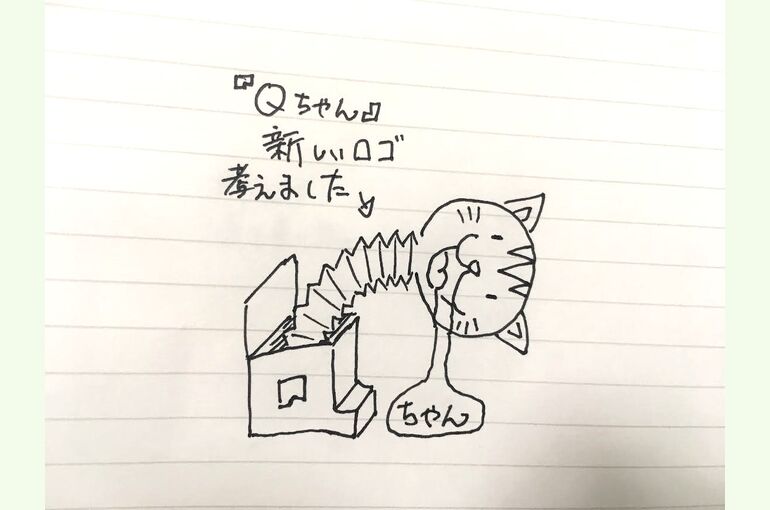 『Qちゃん』
新しいロゴ
考えました
ちゃん